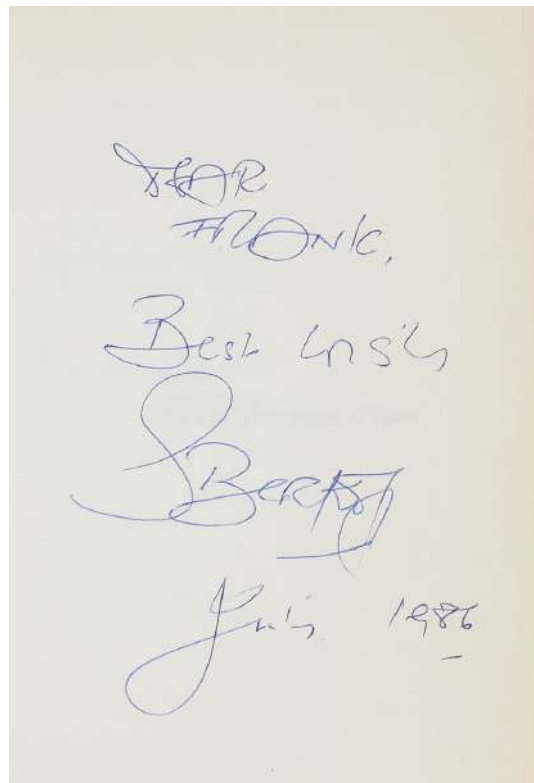 DEAR
FRANK,
Best wish
S Berkoff
1986